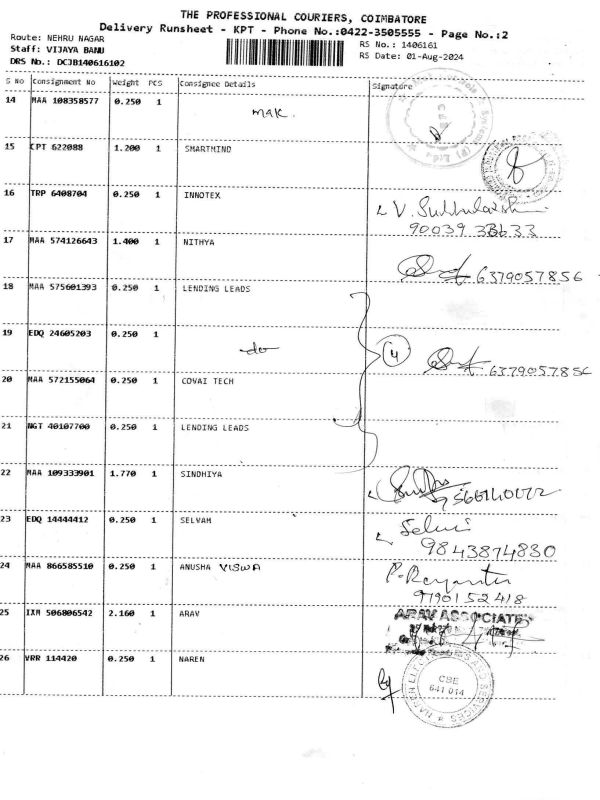 THE PROFESSIONAL COURIERS, COIMBATORE
Delivery Runsheet - KPT - Phone No.:0422-3505555 - Page No.:2
Route: NEHRU NAGAR
RS No.: 1406161
Staff: VIJAYA BANU
RS Date: 01-Aug-2024
DRS No.: DCJB140616102
S No Consignment No Weight PCS Consignee Details Signature
14 MAA 108358577 0.250 1 MAK.
15 CPT 622088 1.200 1 SMARTMIND
16 TRP 6408704 0.250 1 INNOTEX
17 MAA 574126643 1.400 1 NITHYA
6379057856
18 MAA 575601393 0.250 1 LENDING LEADS
19 EDQ 24605203 0.250 1 do
4
6379057856
20 MAA 572155064 0.250 1 COVAI TECH
21 NGT 40107700 0.250 1 LENDING LEADS
22 MAA 109333901 1.770 1 SINDHIYA
23 EDQ 14444412 0.250 1 SELVAM
9843874830
24 MAA 866585510 0.250 1 ANUSHA VISWA
25 IXM 506806542 2.160 1 ARAV
ARAV ASSOCIATES
26 VRR 114420 0.250 1 NAREN
CBE
641 014